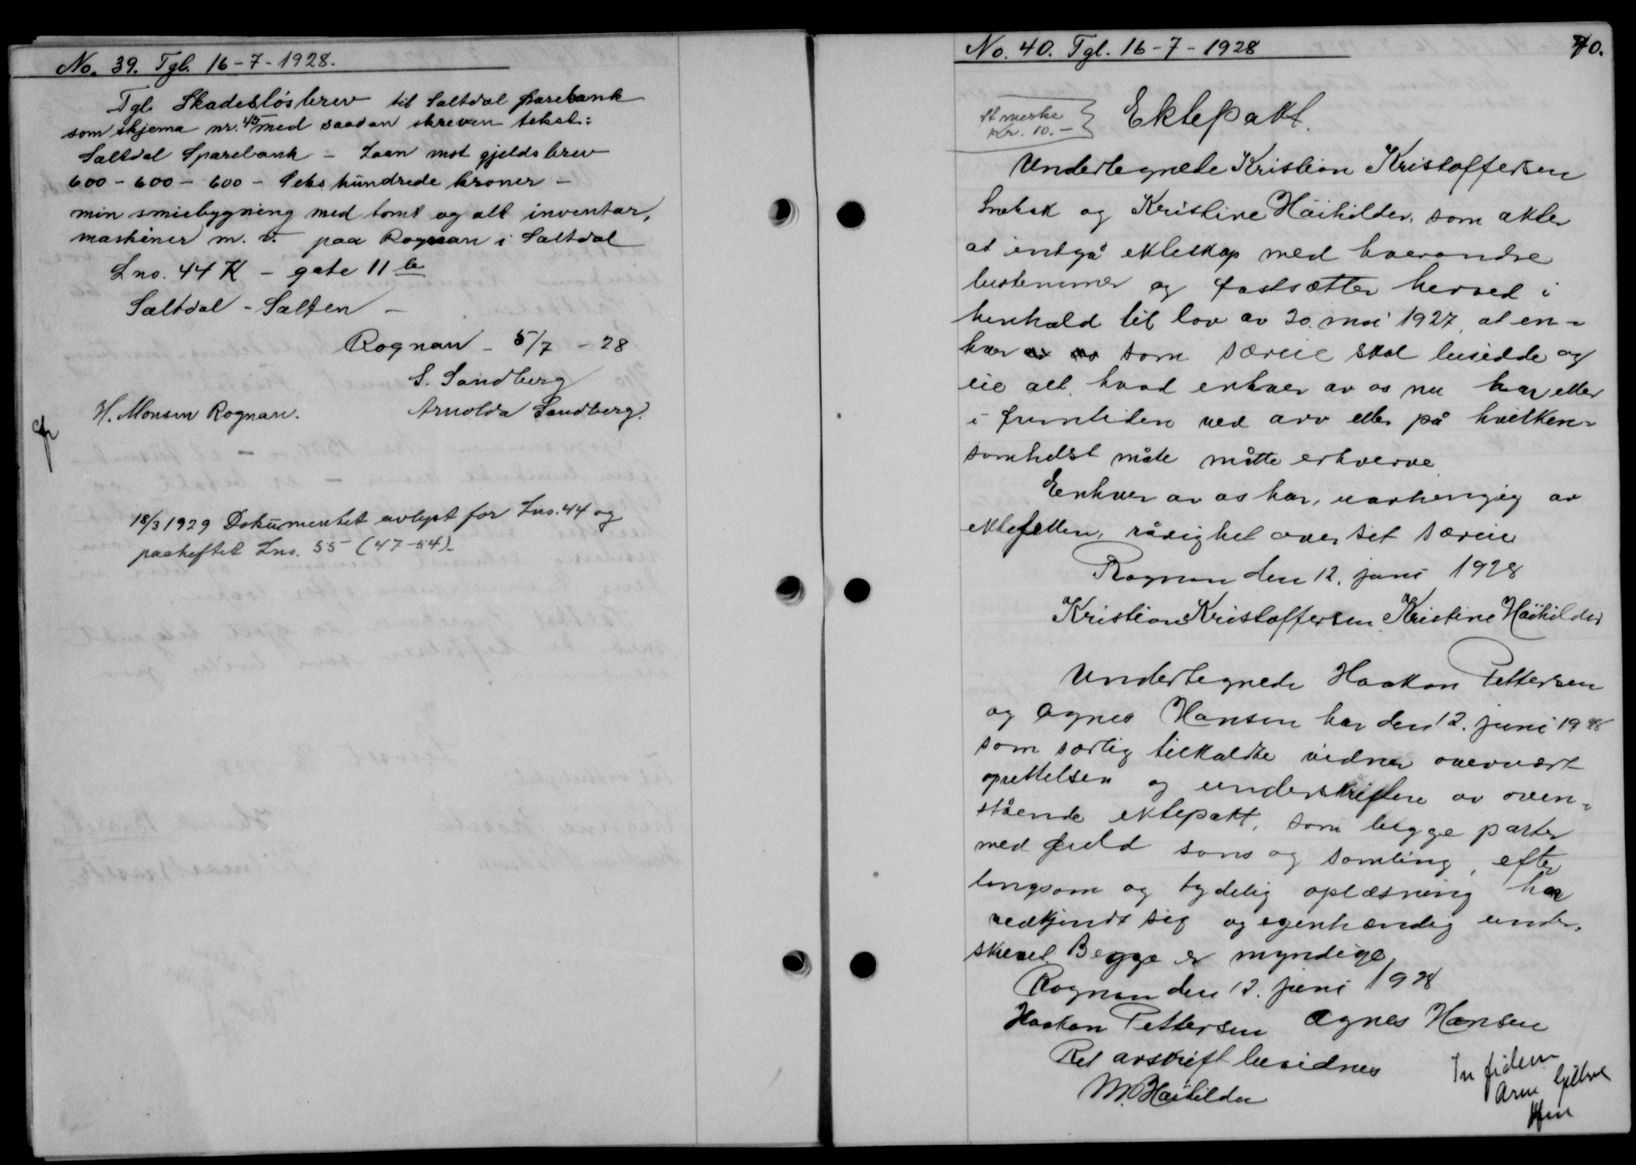 No. 39. Tgl. 16-7-1928.
Tgl. Skadesløsbrev til Saltdal Sparebank
som skjema nr. 45 med saadan skreven tekst:
Saltdal Sparebank – Laan mot gjeldsbrev
600 – 600 – 600 – Seks hundrede kroner –
min smiebygning med tomt og alt inventar,
maskiner m. v. paa Rognan i Saltdal
Lno. 44 K – gate 11 b
Saltdal – Salten –
Rognan – 5/7 – 28
S. Sandberg
H. Monsen Rognan. Arnolda Sandberg.
18/3 1929 Dokumentet avlyst for Lno. 44 og
paaheftet Lno. 55 (47-54)
No. 40. Tgl. 16-7-1928
40.
St. merke
Kr. 10.–
Ektepakt.
Undertegnede Kristian Kristoffersen
og Kristine Häihilder, som akter
at indgå ekteskap med hverandre
bestemmer og fastsætter herved i
henhold til lov av 20. mai 1927, at en-
hver som særeie skal besidde og
eie alt hvad enhver av os nu har eller
i fremtiden ved arv eller på hvilken-
somhelst måte måtte erhverve.
Enhver av os har, uavhengig av
ektefellen, rådighet over sit særeie
Rognan den 12. juni 1928
Kristian Kristoffersen Kristine Häihilder
Undertegnede Haakon Pettersen
og Agnes Hansen har den 12. juni 1928
som særlig tilkaldte vidner overvært
oprettelsen og underskriften av oven-
stående ektepakt, som begge parter
med fuld sans og samling, efter
langsom og tydelig oplæsning har
vedkjendt sig og egenhændig under-
skrevet. Begge er myndige.
Rognan den 12. juni 1928
Haakon Pettersen Agnes Hansen
Ret avskrift bevidnes
M. Häihilder
In fidem
Arne